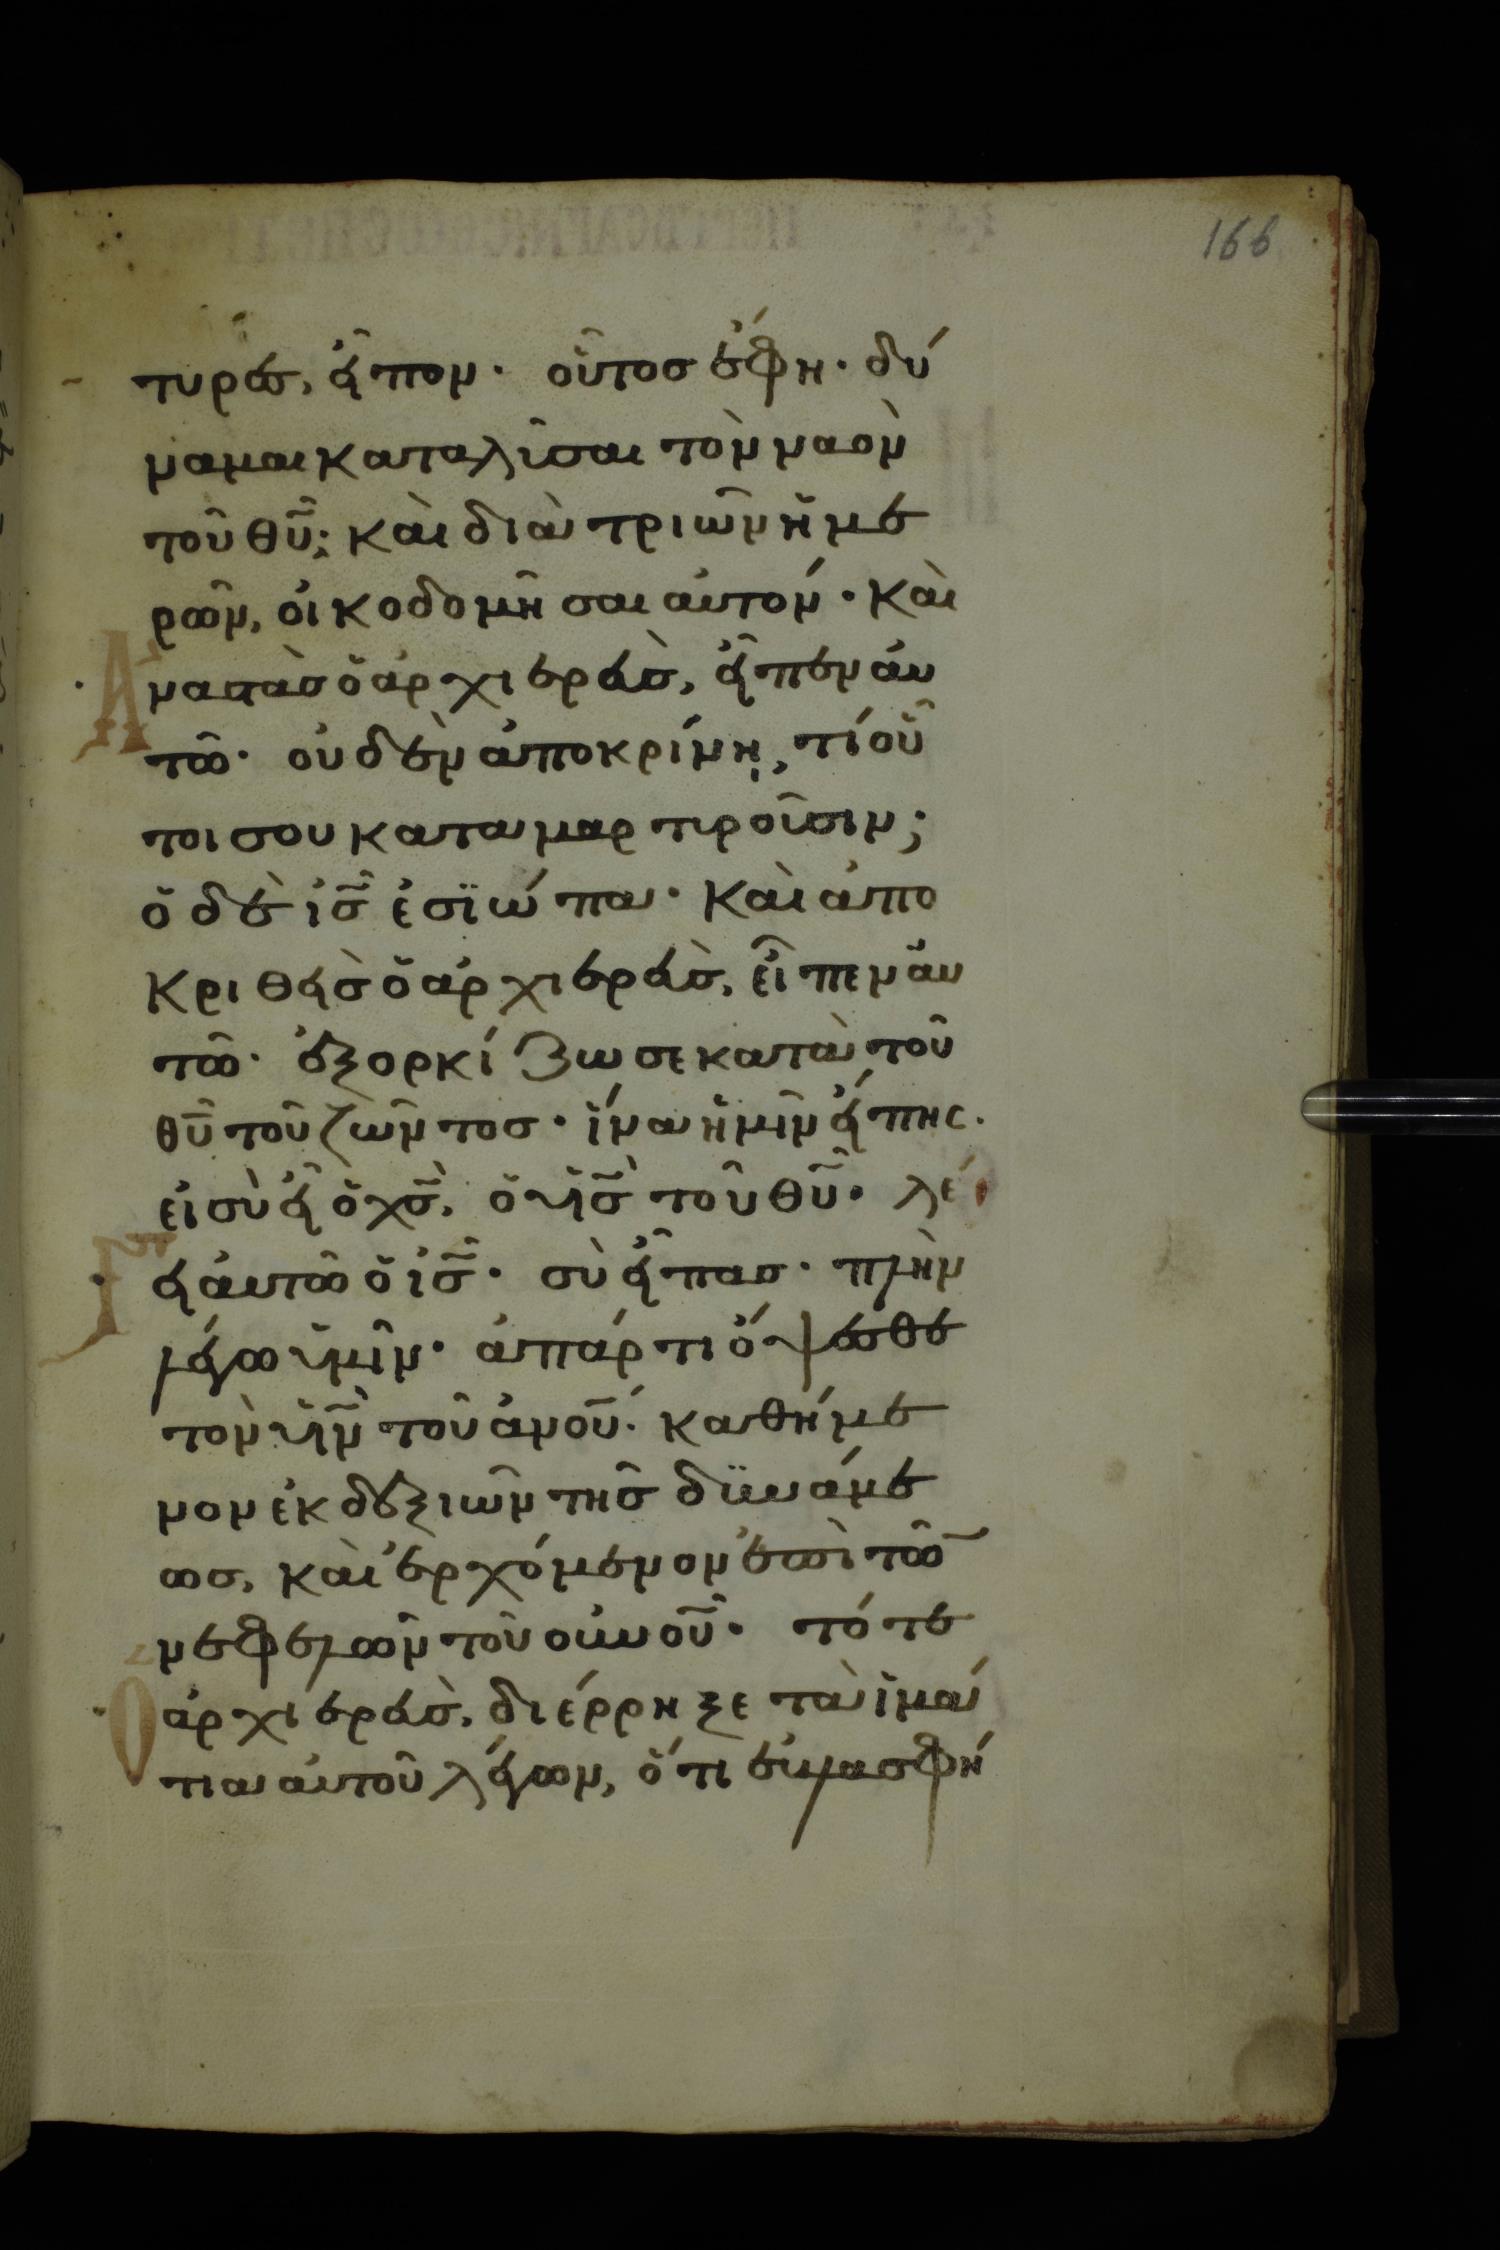 166
τυρεσ, εἶπον· οὗτοσ ἔφη· δύ
ναμαι καταλῦσαι τὸν ναὸν
τοῦ θῦ; καὶ διὰ τριῶν ἡμε
ρῶν, οἰκοδομῆσαι αὐτόν· Καὶ
Ἀναστὰσ ὁ ἀρχιερεὺσ, εἶπεν αὐ
τῶ· οὐδὲν ἀποκρίνη, τί οὗ
τοι σου καταμαρτυροῦσιν;
ὁ δὲ ἰσ ἐσϊώπα· Καὶ ἀπο
Κριθεὶσ ὁ ἀρχιερεὺσ, εἶπεν αὐ
τῶ· ἐξορκίζω σε κατὰ τοῦ
θῦ τοῦ ζῶντοσ· ἵνα ἡμῖν εἴπης.
εἰ σὺ εἶ ὁ χσ, ὁ υἱσ τοῦ θῦ· λέ
Γει αὐτῶ ὁ ἰσ· σὺ εἶπασ· πλὴν
λέγω ὑμῖν· ἀπάρτι ὄψεσθε
τὸν υἱν τοῦ ἀνοῦ. καθήμε
νον ἐκ δεξιῶν τῆσ δϋνάμε
ωσ, καὶ ἐρχόμενον ἐπὶ τῶ
νεφελῶν τοῦ οὐνοῦ· τότε
Ὁ ἀρχιερεὺσ, διέρρηξε τὰ ἱμά
τια αὐτοῦ λέγων, ὅτι ἐβλασφή